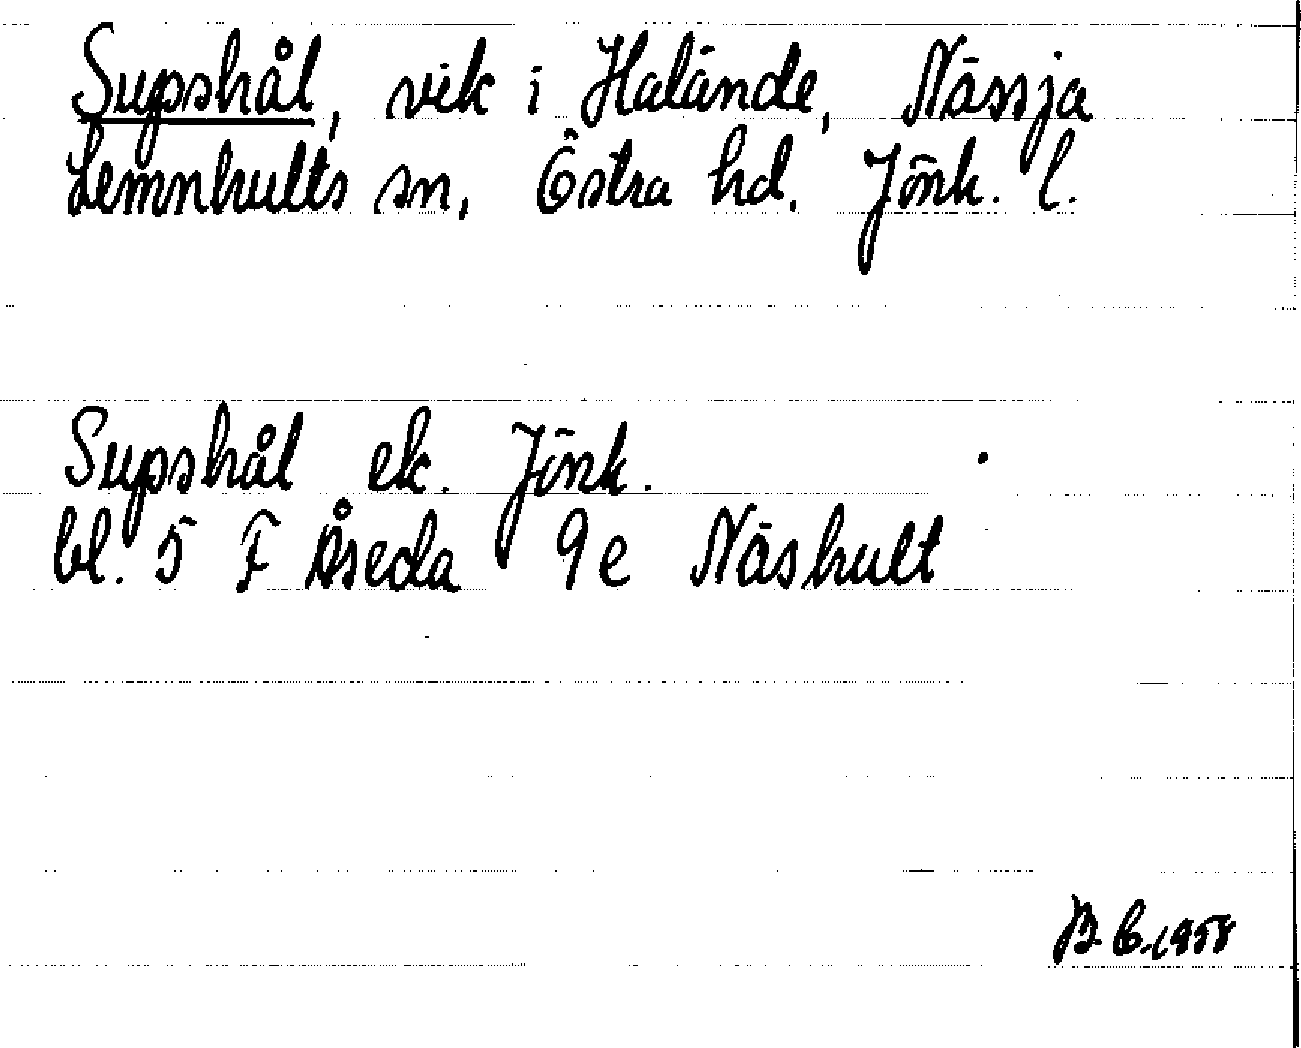 Supshål, vik i Halände, Nässja
Lemnhults sn, Östra hd. Jönk. l.
Supshål ek. Jönk.
bl. 5 F Åseda 9e Näshult
B. E. 1958